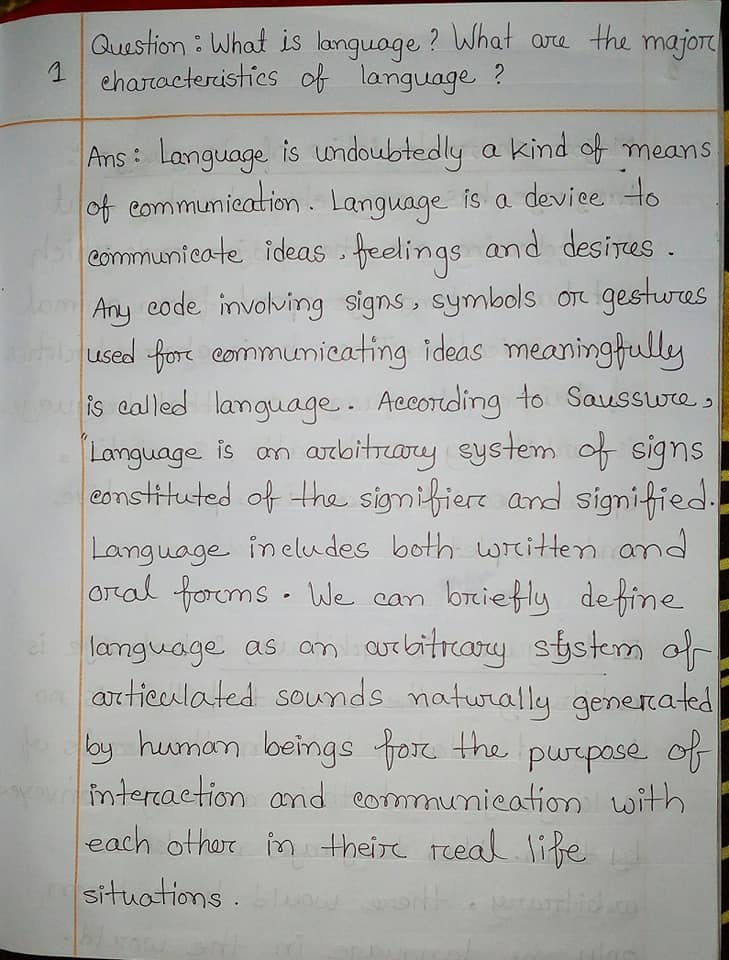 Question : What is language ? What are the major
1 characteristics of language ?
Ans : Language is undoubtedly a kind of means
of communication. Language is a device to
communicate ideas, feelings and desires.
Any code involving signs, symbols or gestures
used for communicating ideas meaningfully
is called language. According to Saussure,
"Language is an arbitrary system of signs
constituted of the signifier and signified.
Language includes both written and
oral forms. We can briefly define
language as an arbitrary system of
articulated sounds naturally generated
by human beings for the purpose of
interaction and communication with
each other in their real life
situations.